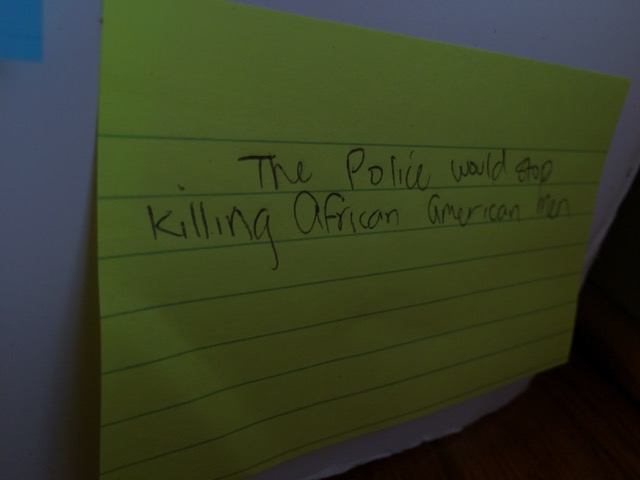 The Police would stop
killing African American men